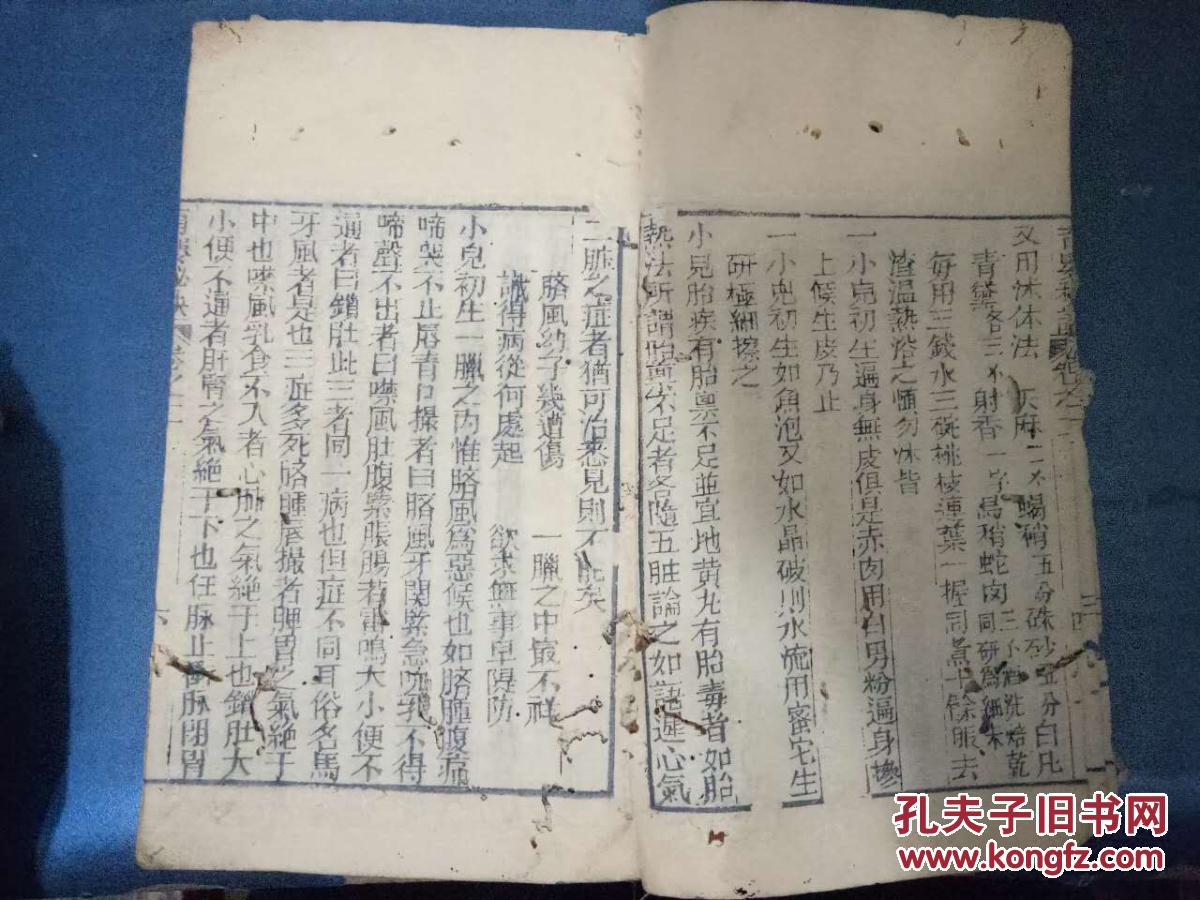 又用沐体法 天麻二不蝎梢五分硃砂五分白凡
青黛各三不射香一字烏稍蛇肉三不酒洗焙乾同研為細末
每用三錢水三碗桃枝連葉一握同煮十餘服去
渣溫熱浴之愐勿沐背
一小兒初生遍身無皮俱是赤肉用白男粉遍身摻
上候生皮乃止
一小兒初生如魚泡又如水晶破則水流用蜜宅生
研極細擦之
小兒胎疾有胎稟不足並宜地黃丸有胎毒者如胎
熱法所謂胎稟不足者各隨五脏論之如語遲心氣
二脏之症者猶可治悉見則不能矣
胳風幼子幾遭傷 一臘之中最不祥
識得病從何處起 欲求無事早隄防
小兒初生一臘之內惟胳風為惡候也如胳腫腹痛
啼哭不止唇青口撮者曰胳風牙関緊急吮乳不得
啼聲不出者曰噤風肚腹緊脹腸若雷鳴大小便不
通者曰鎖肚此三者同一病也但症不同耳俗名馬
牙風者是也三症多死胳腫唇撮者脾胃之氣絕于
中也噤風乳食不入者心肺之氣絕于上也鎖肚大
小便不通者肝腎之氣絕于下也任脉止脉閉胃
秘訣 卷之二 六
孔夫子旧书网
www.kongfz.com